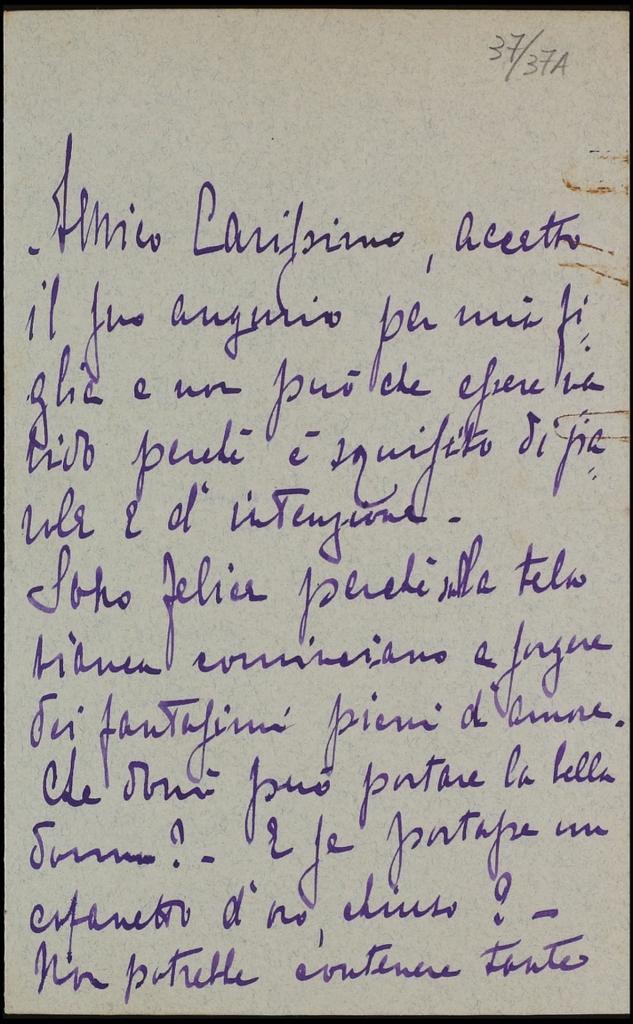 37/37A
Amico Carissimo, accetto
il suo augurio per mia fi-
glia e non può che essere va
lido perchè è squisito di pa-
role e d'intenzione -
Sono felice perchè sulla tela
bianca cominciano a sorgere
dei fantasimi pieni d'amore.
Che doni può portare la bella
donna? - E se portasse un
cofanetto d'oro, chiuso? -
Non potrebbe contenere tante